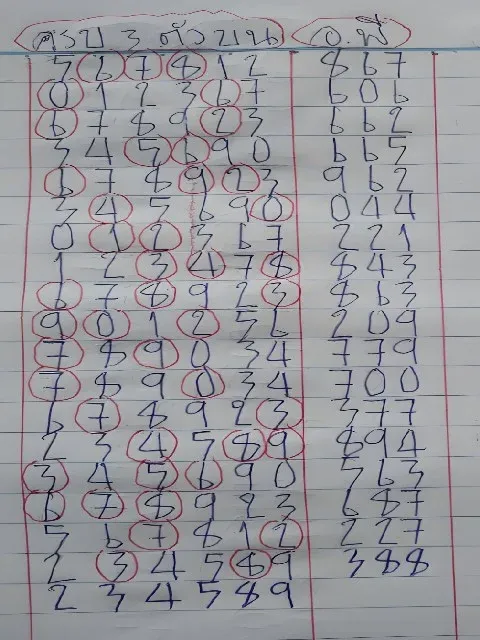 ครบ 3 ตัวบน อ.พี่
5 6 7 8 1 2 8 6 7
0 1 2 3 6 7 6 0 6
6 7 8 9 2 3 6 6 2
3 4 5 6 9 0 6 6 5
6 7 8 9 2 3 9 6 2
3 4 5 6 9 0 0 4 4
0 1 2 3 6 7 2 2 1
1 2 3 4 7 8 8 4 3
6 7 8 9 2 3 8 6 3
9 0 1 2 5 6 2 0 9
7 8 9 0 3 4 7 7 9
7 8 9 0 3 4 7 0 0
6 7 8 9 2 3 3 7 7
2 3 4 5 8 9 8 9 4
3 4 5 6 9 0 5 6 3
6 7 8 9 2 3 6 8 7
5 6 7 8 1 2 2 2 7
2 3 4 5 8 9 3 8 8
2 3 4 5 8 9